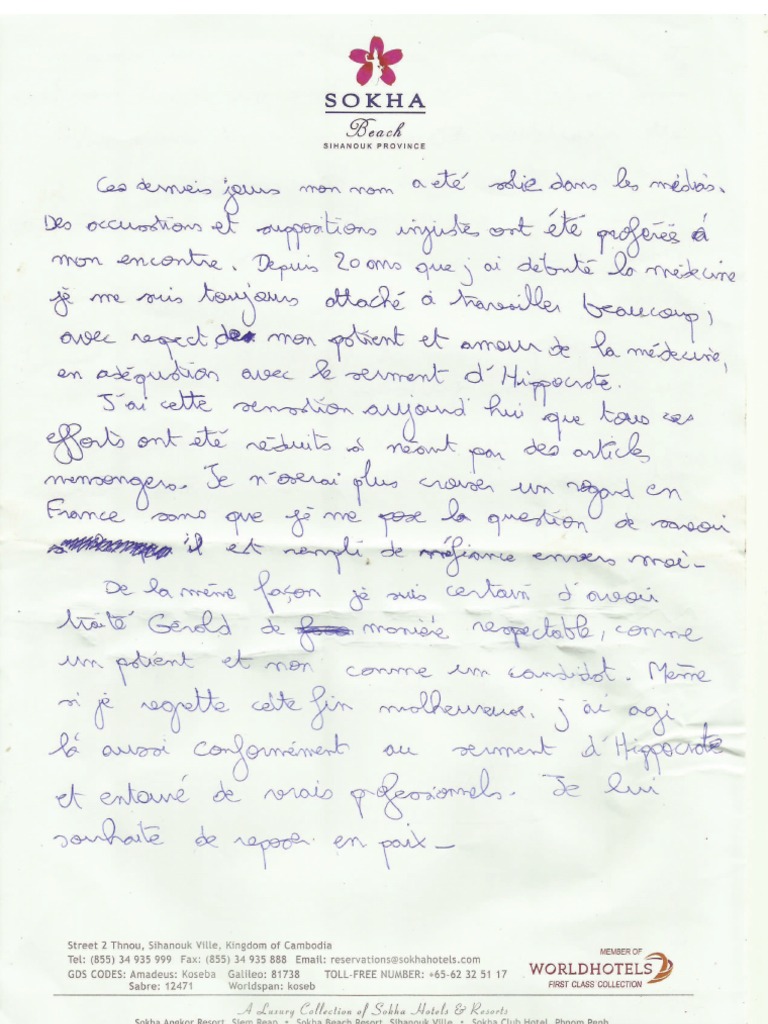 SOKHA
Beach
SIHANOUK PROVINCE
Ces derniers jours mon nom a été salie dans les médias.
Des accusations et suppositions injustes ont été proférés à
mon encontre. Depuis 20 ans que j'ai débuté la médecine
je me suis toujours attaché à travailler beaucoup,
avec respect de mon patient et amour de la médecine,
en adéquation avec le serment d'Hippocrate.
J'ai cette sensation aujourd'hui que tous ces
efforts ont été réduits à néant par des articles
mensongers. Je n'oserai plus croiser un regard en
France sans que je me pose la question de savoir
s'il est rempli de méfiance envers moi-
De la même façon je suis certain d'avoir
traité Gérald de manière respectable, comme
un patient et non comme un candidat. Même
si je regrette cette fin malheureuse. j'ai agi
là aussi conformément au serment d'Hippocrate
et entouré de vrais professionnels. Je lui
souhaite de reposer en paix-
Street 2 Thnou, Sihanouk Ville, Kingdom of Cambodia
Tel: (855) 34 935 999 Fax: (855) 34 935 888 Email: reservations@sokhahotels.com
GDS CODES: Amadeus: Koseba Galileo: 81738 TOLL-FREE NUMBER: +65-62 32 51 17
Sabre: 12471 Worldspan: koseb
MEMBER OF
WORLDHOTELS
FIRST CLASS COLLECTION
A Luxury Collection of Sokha Hotels & Resorts
Sokha Angkor Resort, Siem Reap • Sokha Beach Resort, Sihanouk Ville • Sokha Club Hotel, Phnom Penh